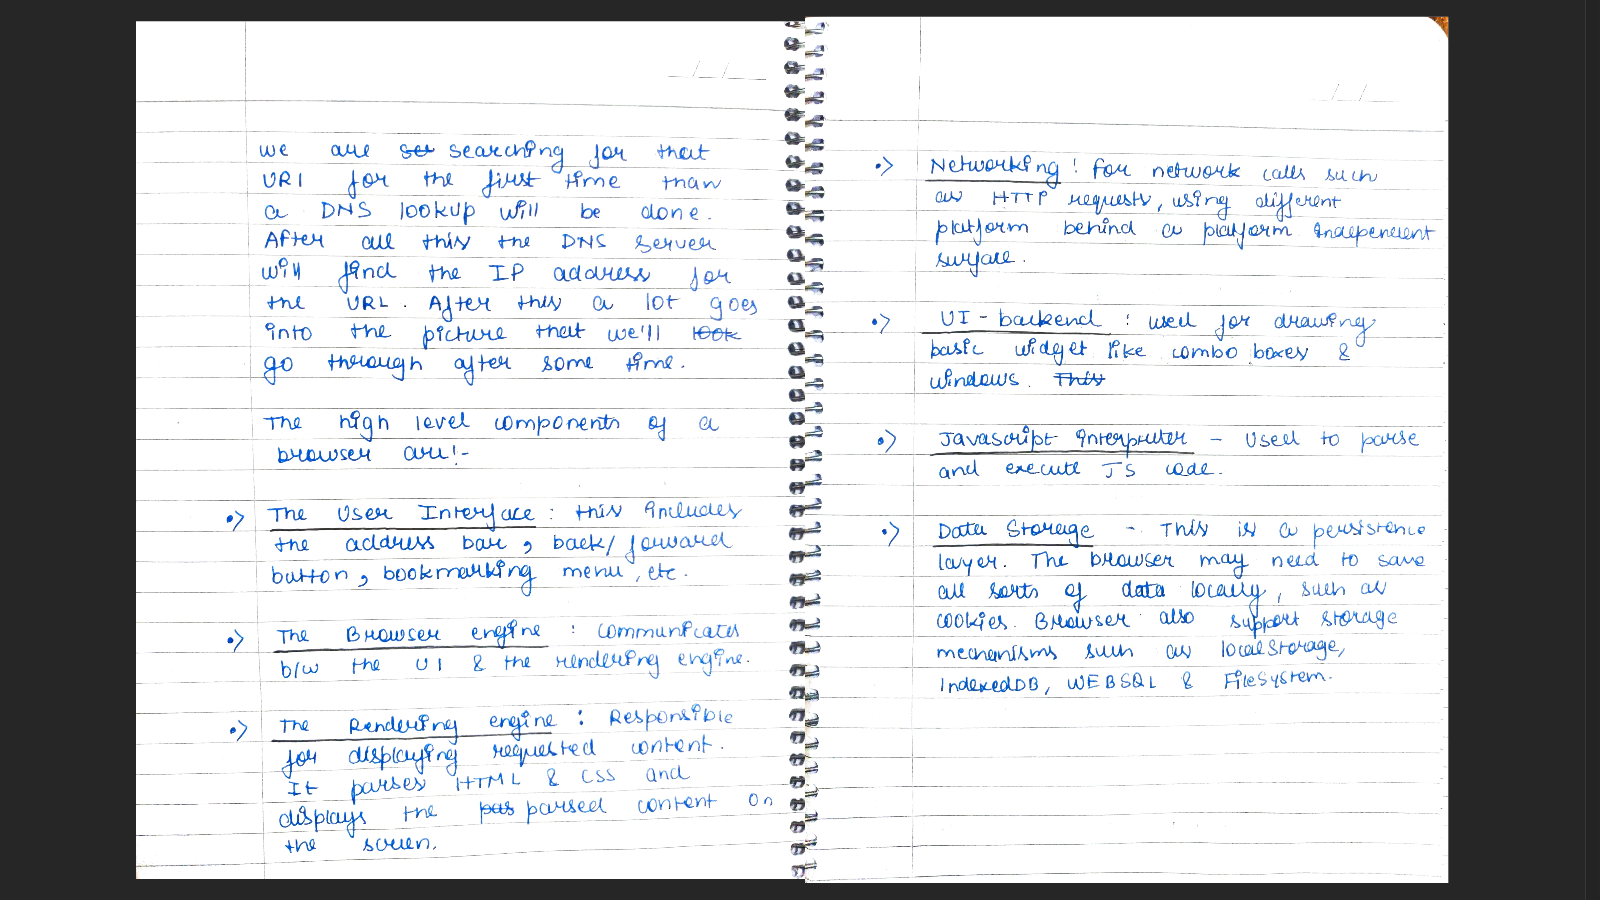 we are ser searching for that
URI for the first time than
a DNS lookup will be done.
After all this the DNS server
will find the IP address for
the URL. After this a lot goes
into the picture that we'll look
go through after some time.
The high level components of a
browser are!-
•> The User Interface : this includes
the address bar, back/forward
button, bookmarking menu, etc.
•> The Browser engine : communicates
b/w the UI & the rendering engine.
•> The Rendering engine : Responsible
for displaying requested content.
It parses HTML & CSS and
displays the pas parsed content on
the screen.
•> Networking : for network calls such
as HTTP requests, using different
platform behind a platform independent
surface.
•> UI-backend : used for drawing
basic widget like combo boxes &
windows. This
•> Javascript interpreter - Used to parse
and execute JS code.
•> Data Storage - This is a persistence
layer. The browser may need to save
all sorts of data locally, such as
cookies. Browser also support storage
mechanisms such as localStorage,
IndexedDB, WEBSQL & FileSystem.